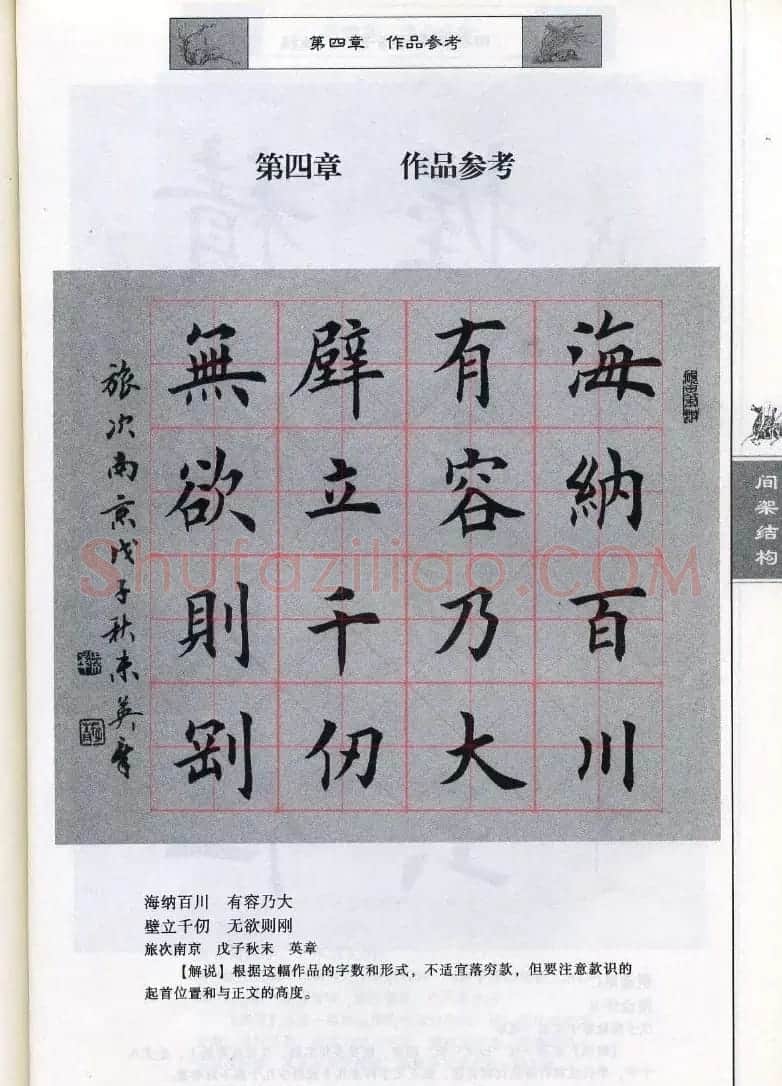 第四章　作品参考
第四章　作品参考
海納百川
有容乃大
壁立千仞
無欲則剛
旅次南京戊子秋末英章
Shufaziliao.COM
间架结构
海纳百川　有容乃大
壁立千仞　无欲则刚
旅次南京　戊子秋末　英章
【解说】根据这幅作品的字数和形式，不适宜落穷款，但要注意款识的
起首位置和与正文的高度。